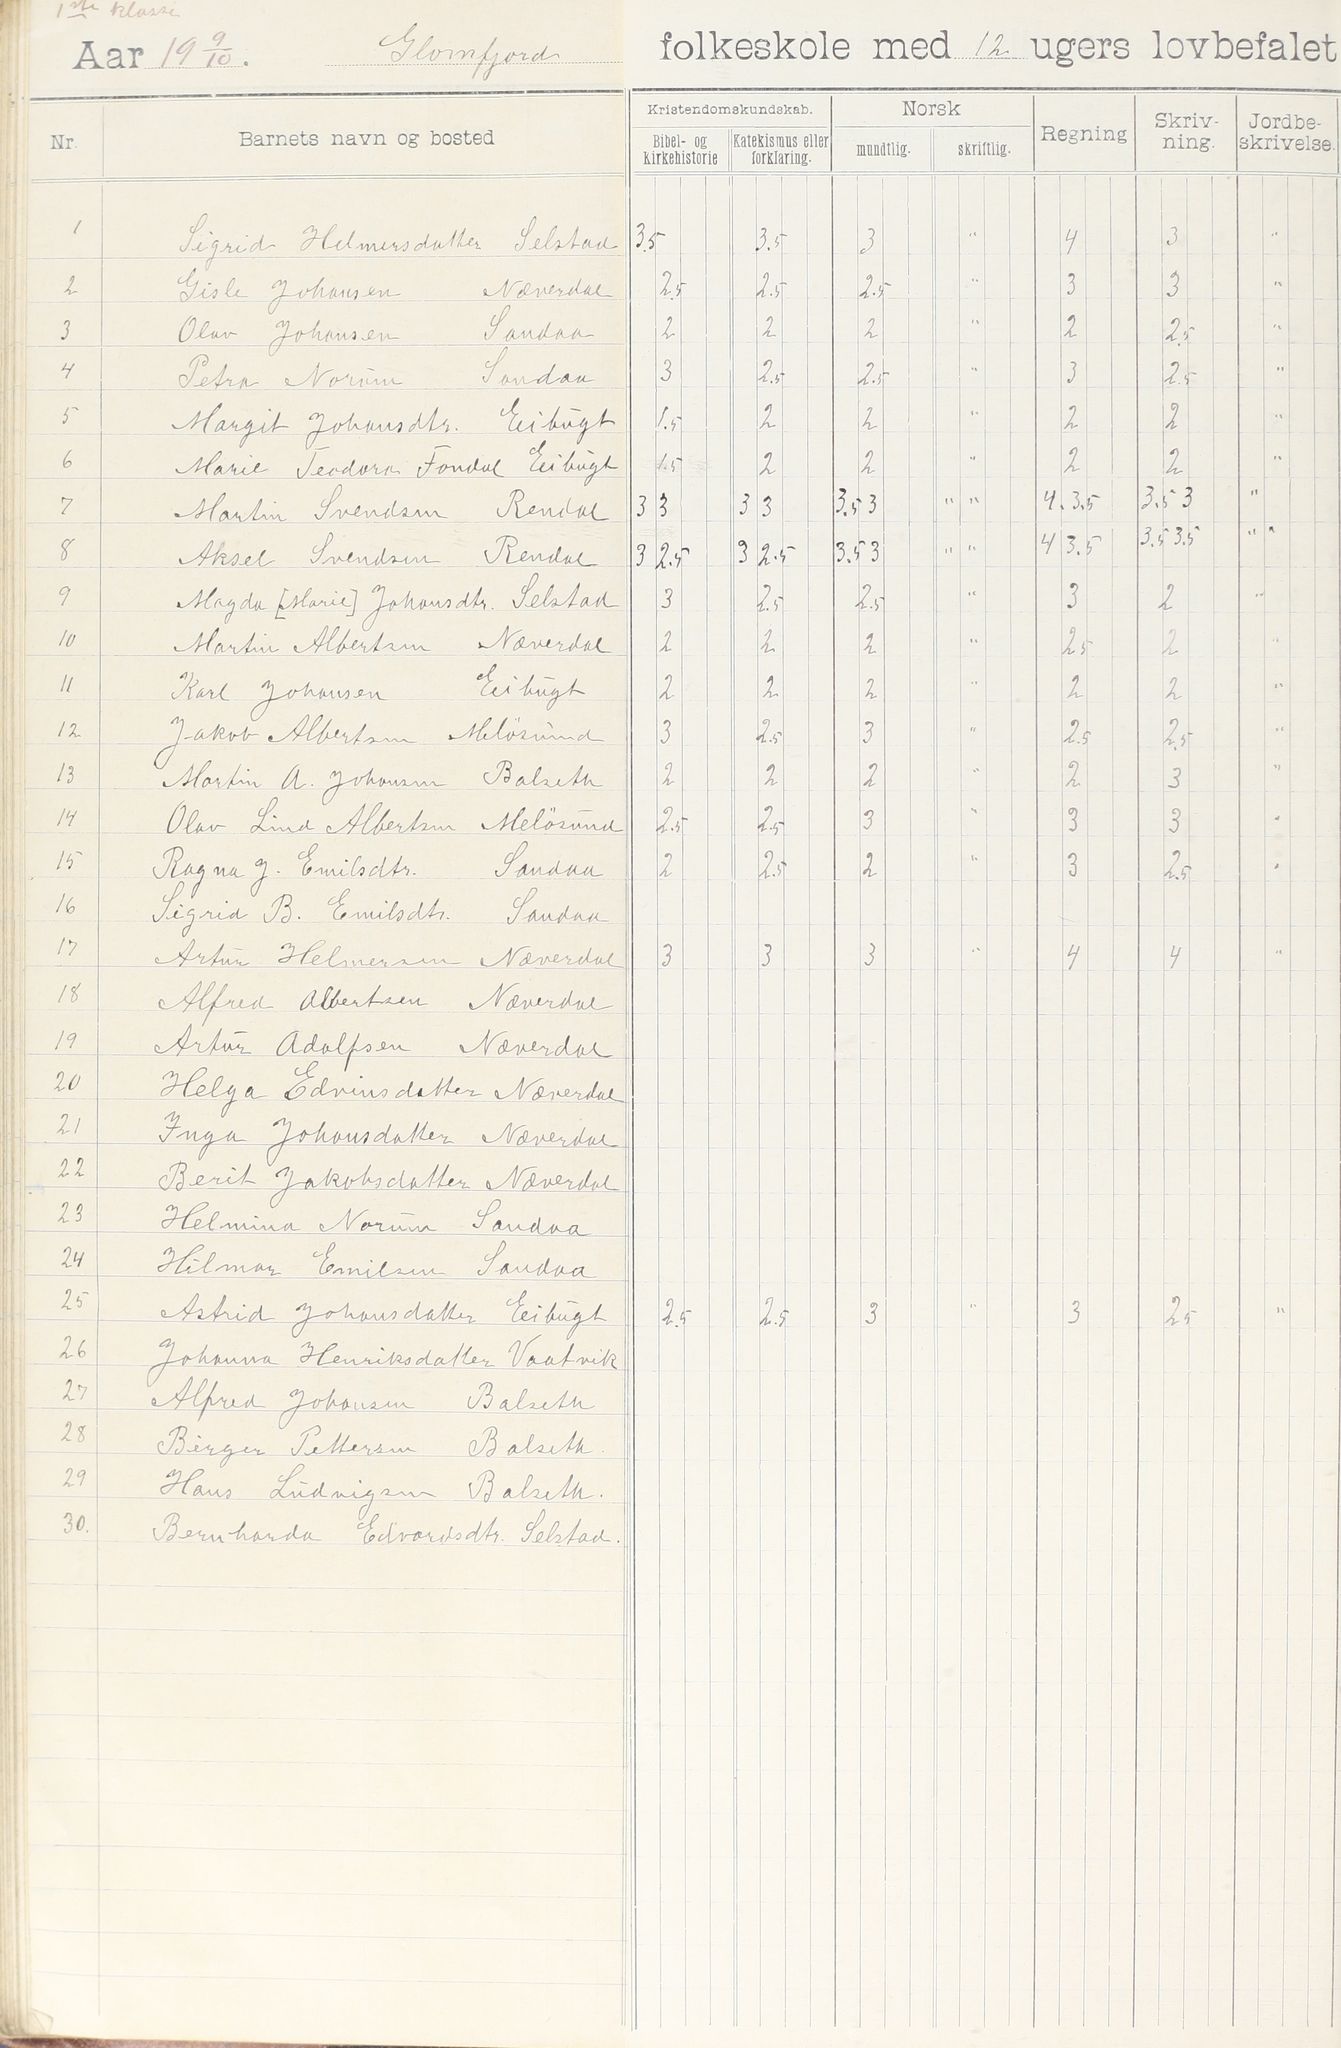 1ste klasse
Aar 19 9/10. Glomfjord folkeskole med 12 ugers lovbefalet
Nr. Barnets navn og bosted Kristendomskundskab. Norsk Regning Skriv-ning. Jordbe-skrivelse.
Bibel- og Kirkehistorie Katekismus eller forklaring. mundtlig. skriftlig.
1 Sigrid Helmersdatter Selstad 3.5 3.5 3 " 4 3 "
2 Gisle Johansen Næverdal 2.5 2.5 2.5 " 3 3 "
3 Olav Johansen Sandaa 2 2 2 " 2 2.5 "
4 Petra Norum Sandaa 3 2.5 2.5 " 3 2.5 "
5 Margit Johansdtr. Eibugt 1.5 2 2 " 2 2 "
6 Marie Teodora Fondal Eibugt 1.5 2 2 " 2 2 "
7 Martin Svendsen Rendal 3 3 3 3 3.5 3 " " 4. 3.5 3.5 3 "
8 Aksel Svendsen Rendal 3 2.5 3 2.5 3.5 3 " " 4 3.5 3.5 3.5 " "
9 Magda [Marie] Johansdtr. Selstad 3 2.5 2.5 " 3 2 "
10 Martin Albertsen Næverdal 2 2 2 " 2.5 2 "
11 Karl Johansen Eibugt 2 2 2 " 2 2 "
12 Jakob Albertsen Melösund 3 2.5 3 " 2.5 2.5 "
13 Martin A. Johansen Balseth 2 2 2 " 2 3 "
14 Olav Lind Albertsen Melösund 2.5 2.5 3 " 3 3 "
15 Ragna J. Emilsdtr. Sandaa 2 2.5 2 " 3 2.5 "
16 Sigrid B. Emilsdtr. Sandaa
17 Artur Helmersen Næverdal 3 3 3 " 4 4 "
18 Alfred Albertsen Næverdal
19 Artur Adolfsen Næverdal
20 Helga Edvinsdatter Næverdal
21 Inga Johansdatter Næverdal
22 Berit Jakobsdatter Næverdal
23 Helmina Norum Sandaa
24 Hilmar Emilsen Sandaa
25 Astrid Johansdatter Eibugt 2.5 2.5 3 " 3 2.5 "
26 Johanna Henriksdatter Vaatvik
27 Alfred Johansen Balseth
28 Birger Pettersen Balseth.
29 Hans Ludvigsen Balseth.
30. Bernharda Edvardsdtr. Selstad.